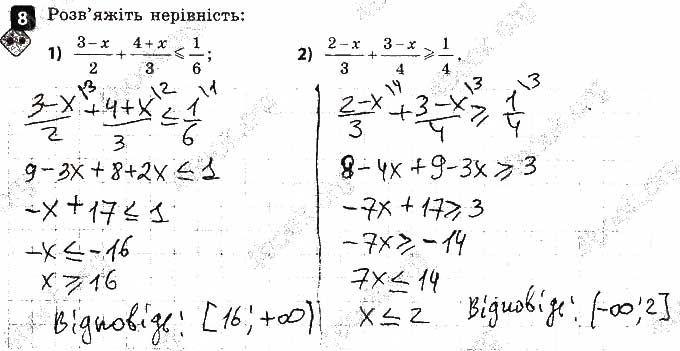 8 Розв'яжіть нерівність:
1) (3−x)/2 + (4+x)/3 ≤ 1/6;
3−x\3 / 2 + 4+x\2 / 3 ≤ 1\1 / 6
9−3x+8+2x ≤ 1
−x+17 ≤ 1
−x ≤ −16
x ≥ 16
Відповідь: [16; +∞)
2) (2−x)/3 + (3−x)/4 ≥ 1/4.
2−x\4 / 3 + 3−x\3 / 4 ≥ 1\3 / 4
8−4x+9−3x ≥ 3
−7x+17 ≥ 3
−7x ≥ −14
7x ≤ 14
x ≤ 2
Відповідь: (−∞; 2]